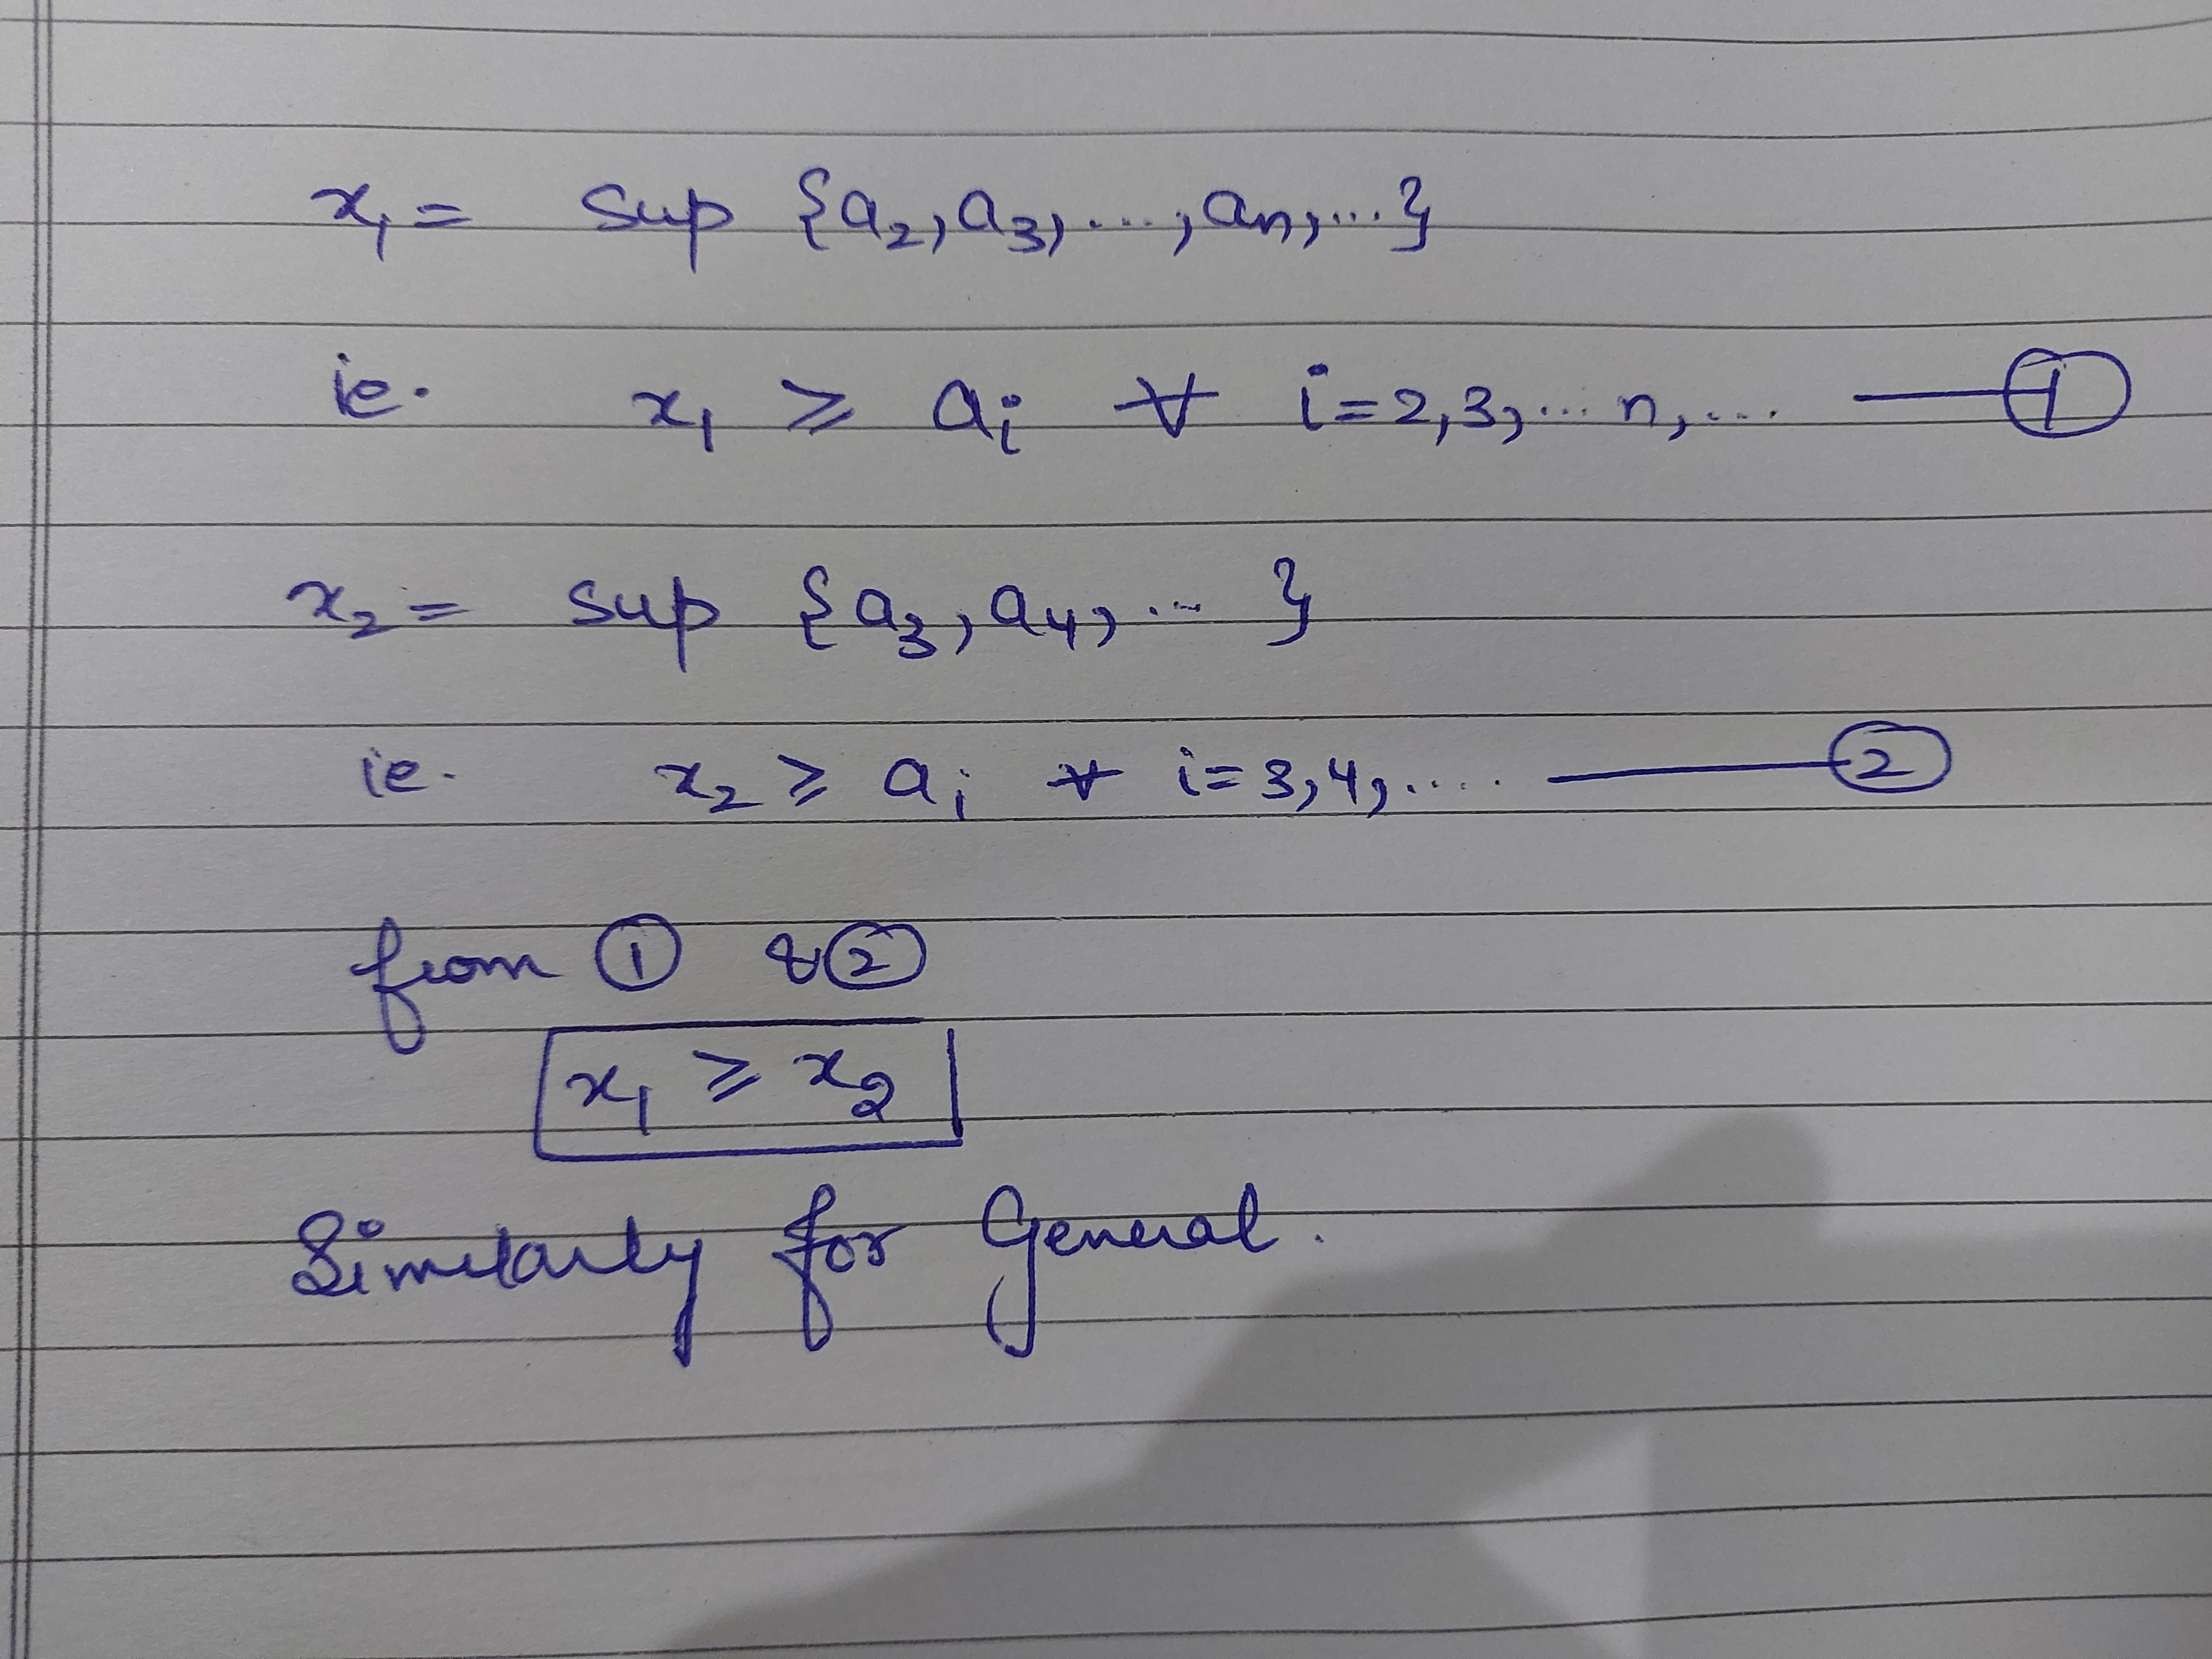 x₁ = sup {a₂, a₃, ..., aₙ, ...}
ie. x₁ ⩾ aᵢ ∀ i=2,3,... n, ... —— ①
x₂ = sup {a₃, a₄, ... }
ie. x₂ ⩾ aᵢ ∀ i=3,4,.... —— ②
from ① & ②
x₁ ⩾ x₂
Similarly for General.